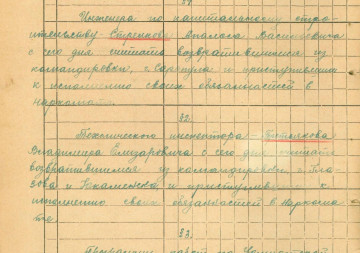 81.
Инженера по капитальному стро-
ительству Стренкова Аполоса Васильевича
с сего дня считать возвратившимся из
командировки, г. Сарапула и приступившим
к исполнению своих обязанностей в
Наркомате.
82.
Технического инспектора –
Владимира Елизаровича с сего дня считать
возвратившимся из командировки, г. Гла-
зова и приступившим к
исполнению своих обязанностей в Нарком-
те.
83.